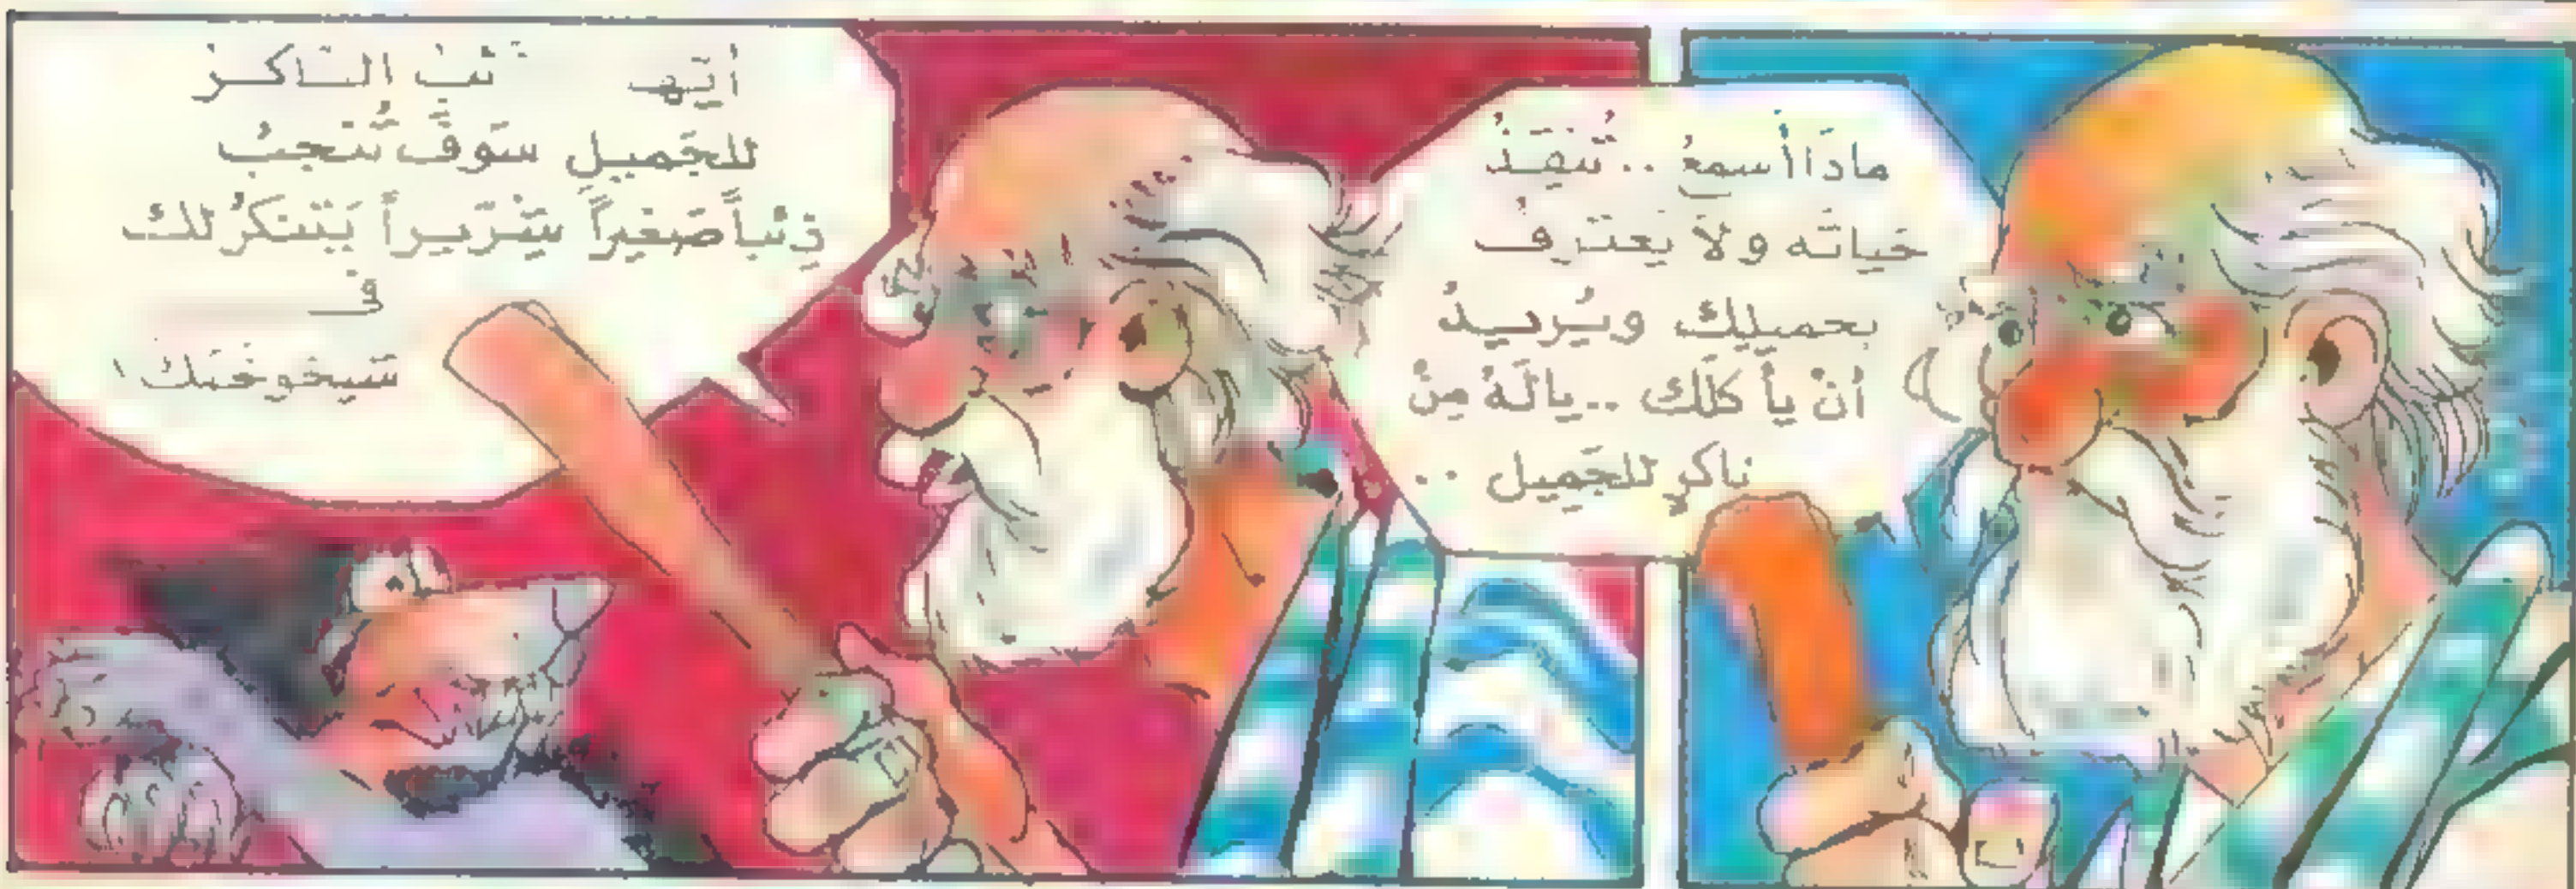 ماذَا أسمعُ .. تُنقِذُ
حَياتَه ولاَ يَعتَرِفُ
بجميلِكَ ويُريدُ
أنْ يأكلَك .. يالَهُ مِنْ
ناكرٍ للجَميل ..
أيّها النّاكرُ
للجَميلِ سَوفَ تُنجبُ
ذِئباً صَغيراً شِرّيراً يَتَنكرُ لك
في
شَيخوخَتك !